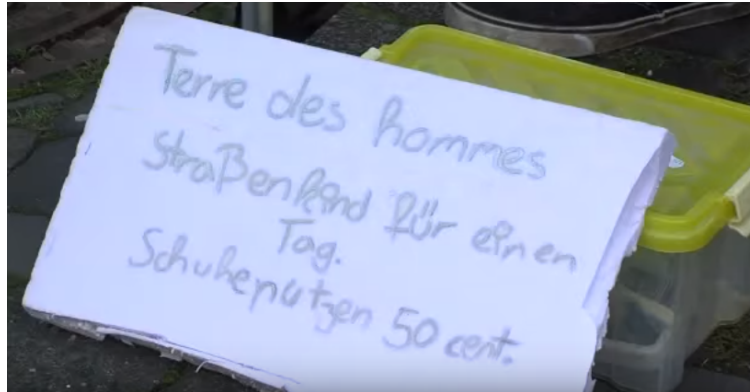 Terre des hommes
Straßenkind für einen
Tag.
Schuheputzen 50 cent.